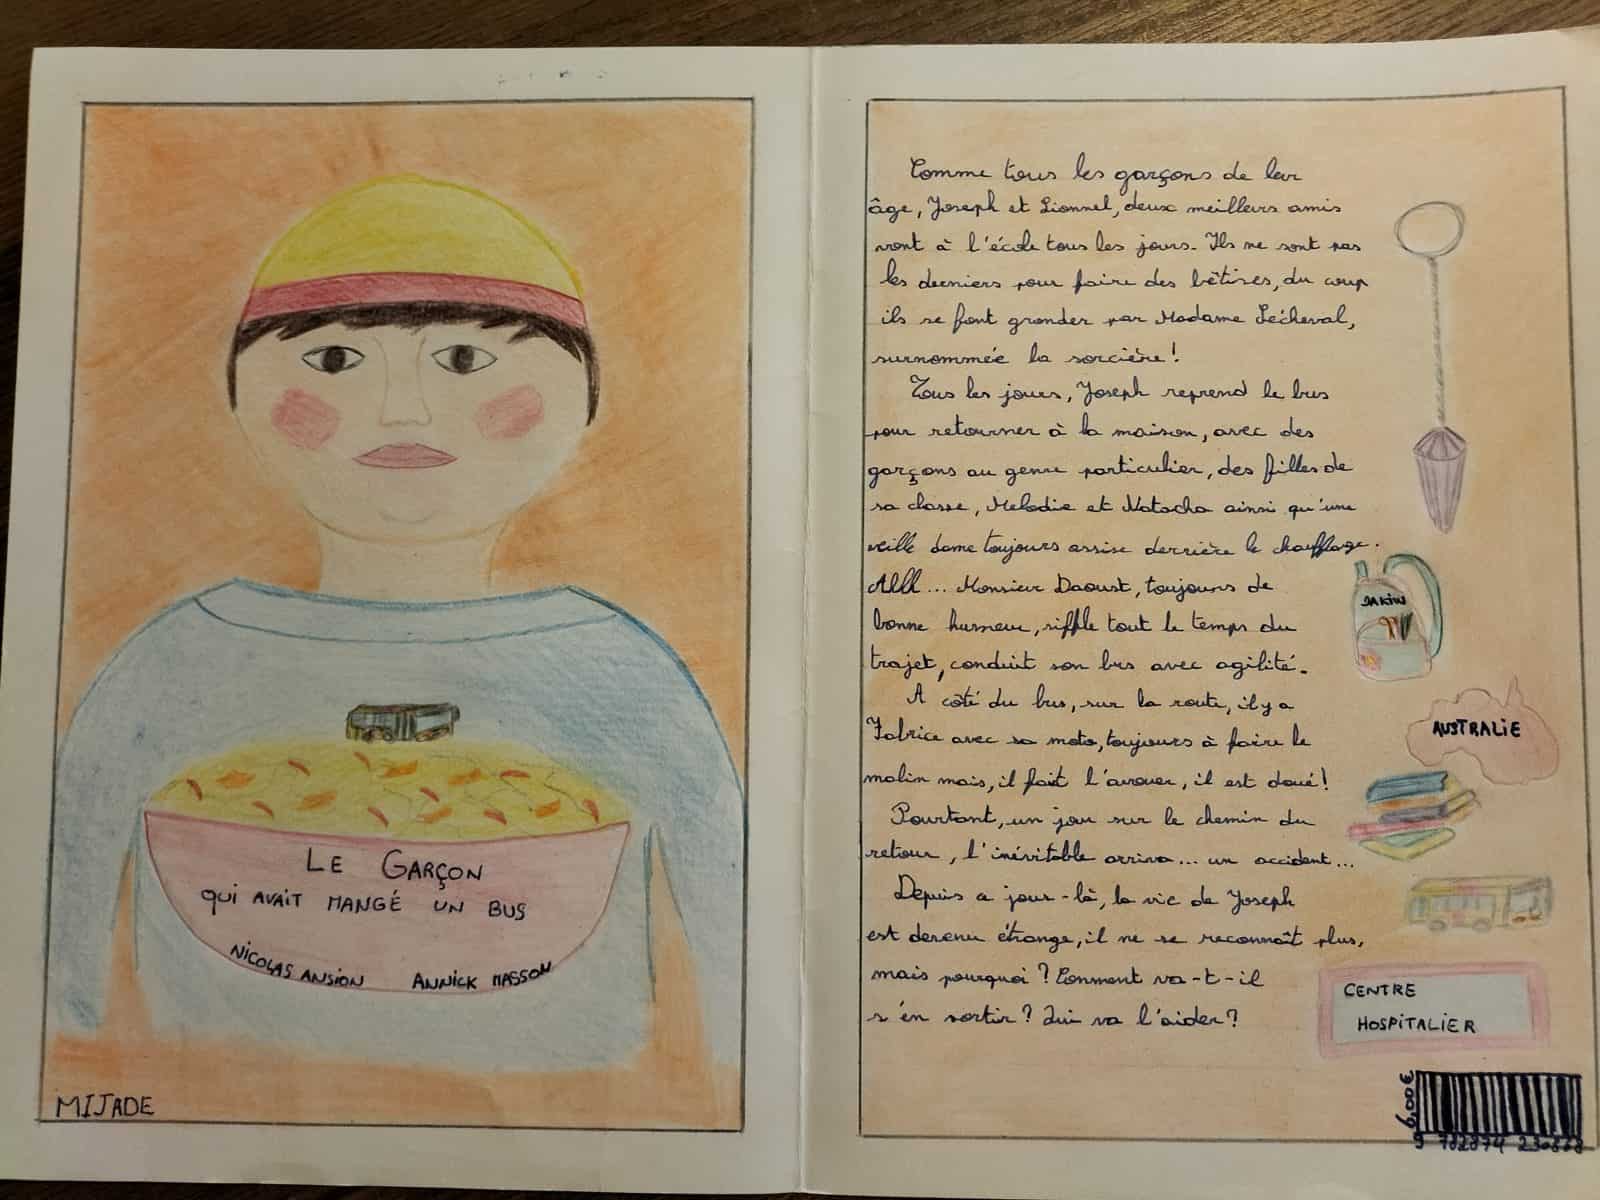 LE GARÇON
QUI AVAIT MANGÉ UN BUS
NICOLAS ANSION ANNICK MASSON
MIJADE
Comme tous les garçons de leur
âge, Joseph et Lionnel, deux meilleurs amis
vont à l'école tous les jours. Ils ne sont pas
les derniers pour faire des bêtises, du coup
ils se font gronder par Madame Lécheval,
surnommée la sorcière !
Tous les jours, Joseph reprend le bus
pour retourner à la maison, avec des
garçons au genre particulier, des filles de
sa classe, Melodie et Natacha ainsi qu'une
veille dame toujours assise derrière le chauffage.
Ahh... Monsieur Daoust, toujours de
bonne humeur, siffle tout le temps du
trajet, conduit son bus avec agilité.
A côté du bus, sur la route, il y a
Fabrice avec sa moto, toujours à faire le
malin mais, il faut l'avouer, il est doué !
Pourtant, un jour sur le chemin du
retour, l'inévitable arriva... un accident...
Depuis ce jour-là, la vie de Joseph
est devenu étrange, il ne se reconnaît plus,
mais pourquoi ? Comment va-t-il
s'en sortir ? Qui va l'aider ?
DAKINE
AUSTRALIE
CENTRE
HOSPITALIER
6,00€
9 782874 230868